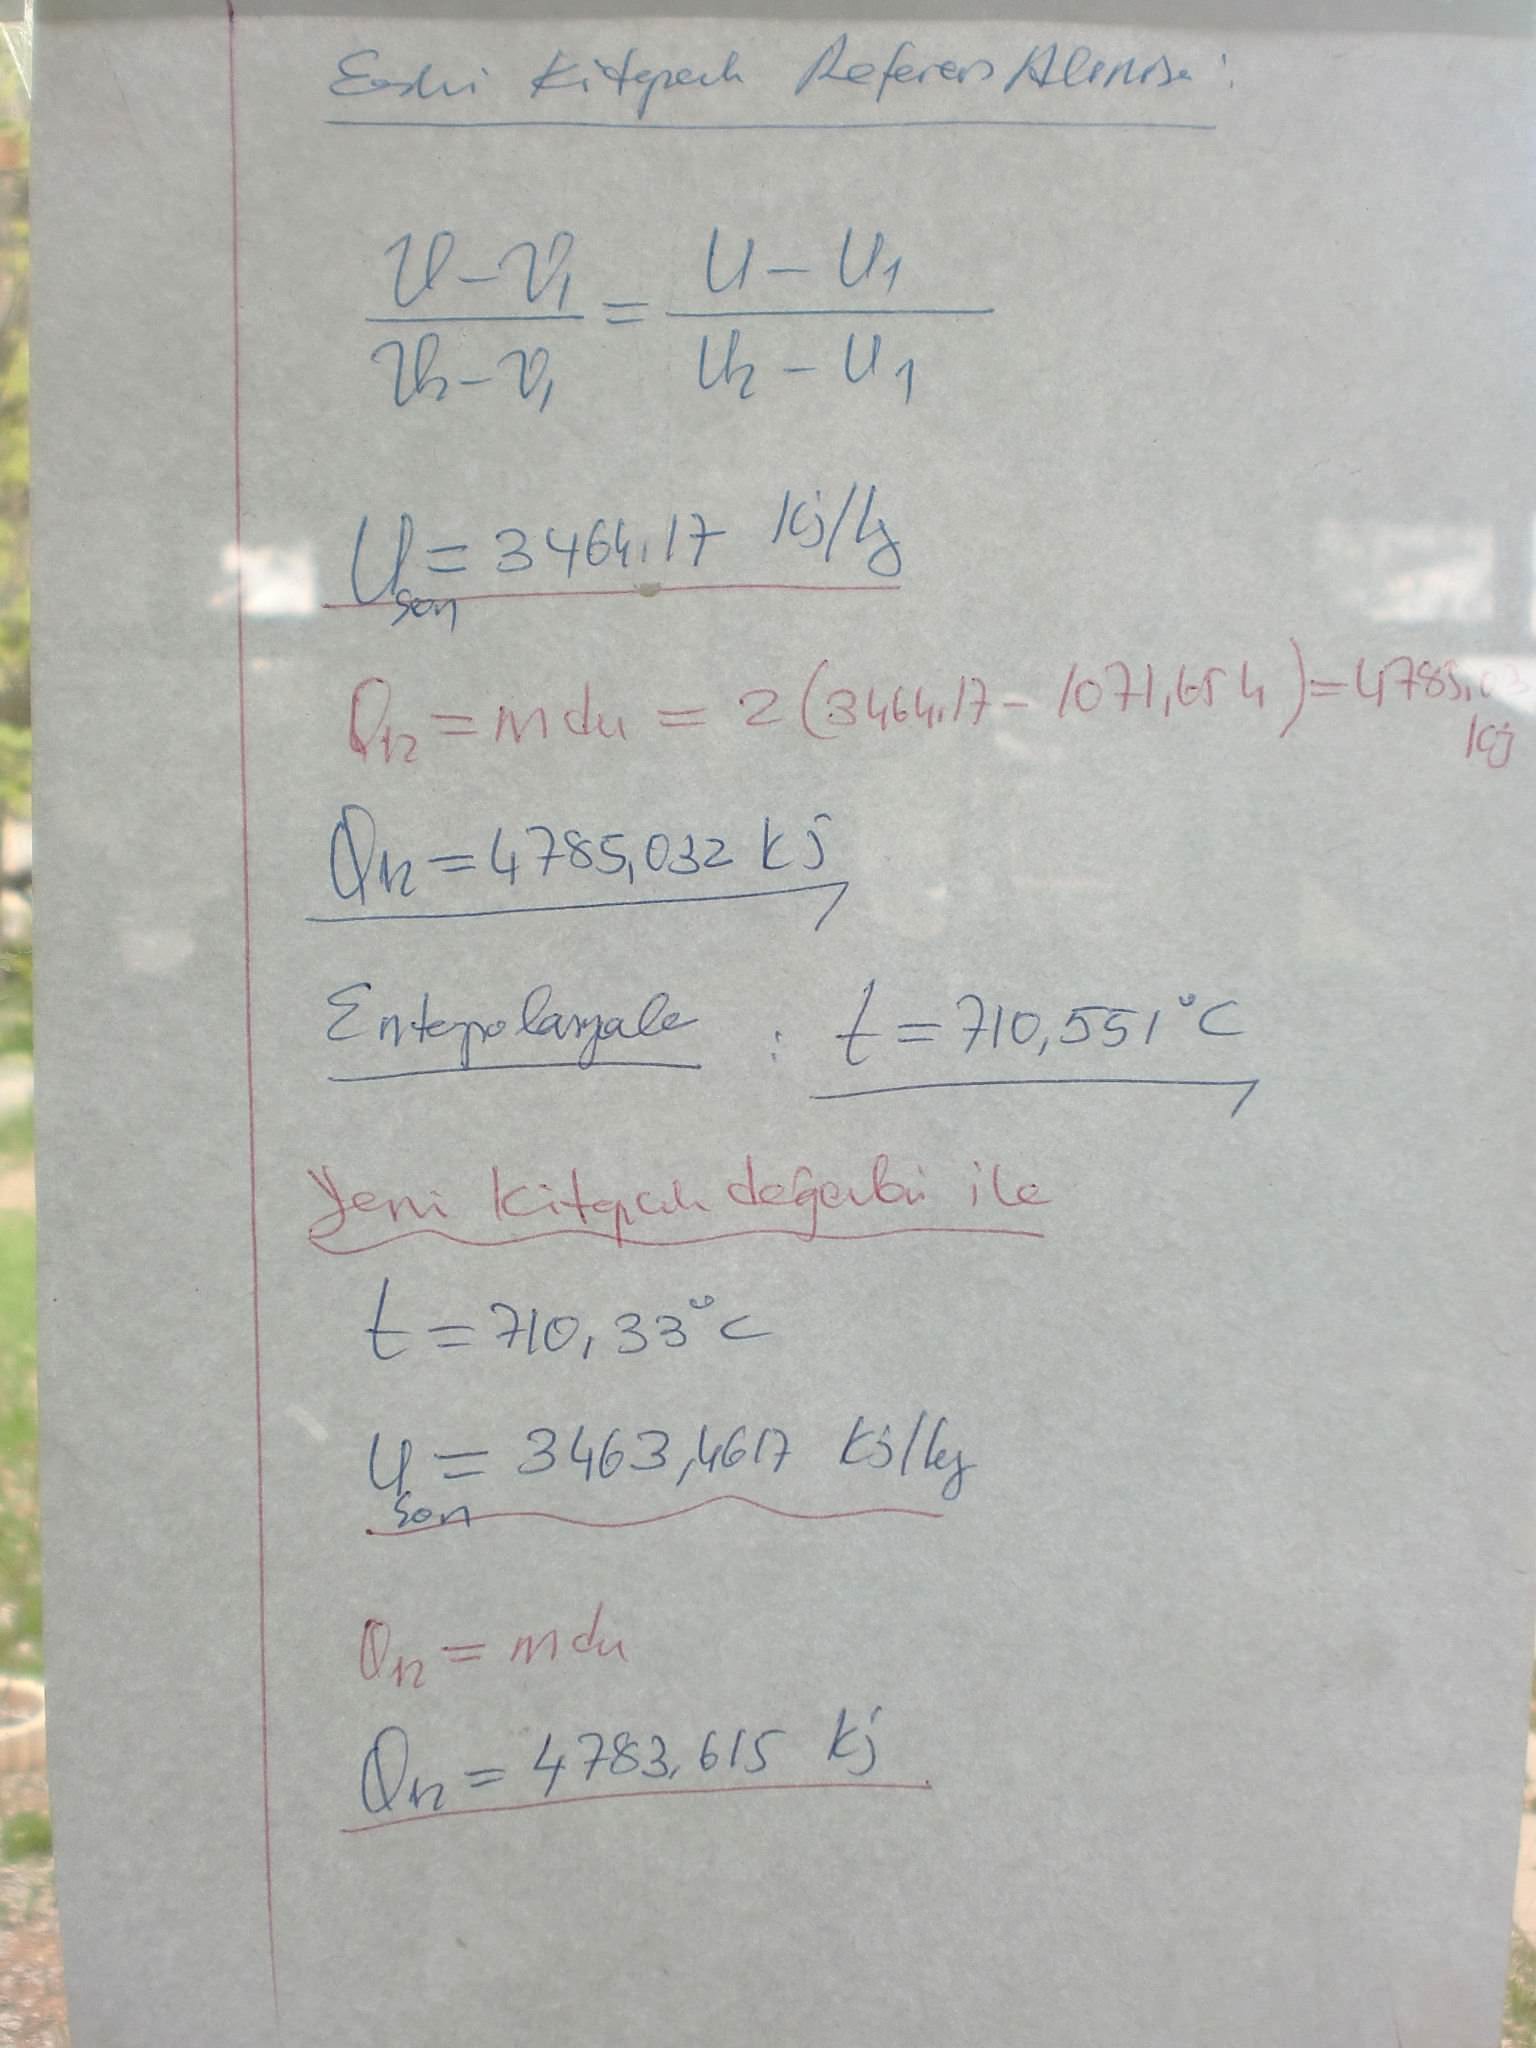 Eski Kitapcık Referans Alınırsa:
v-v₁ / v₂-v₁ = u-u₁ / u₂-u₁
u son = 3464,17 kj/kg
Q₁₂ = mdu = 2(3464,17-1071,654) = 4785,03 kj
Q₁₂ = 4785,032 kj
Entepolasyonla : t = 710,551°C
Yeni Kitapcık değerleri ile
t = 710,33°C
u son = 3463,4617 kj/kg
Q₁₂ = mdu
Q₁₂ = 4783,615 kj